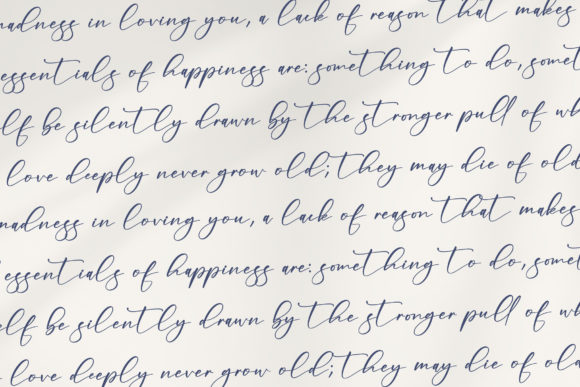 madness in loving you, a lack of reason that makes
essentials of happiness are: something to do, somet
elf be silently drawn by the stronger pull of wh
love deeply never grow old; they may die of old
madness in loving you, a lack of reason that makes
essentials of happiness are: something to do, somet
elf be silently drawn by the stronger pull of wh
love deeply never grow old; they may die of old